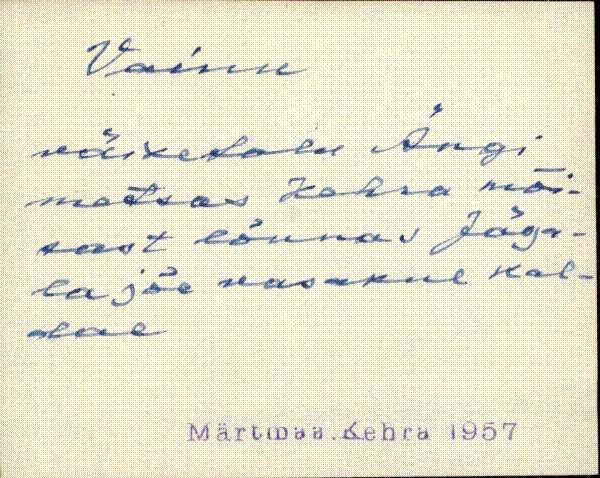 Vainu
väiketalu Ängi
metsas Kehra mõi-
sast lõunas Jäga-
la jõe vasakul kal-
dal
Märtmaa. Kehra 1957